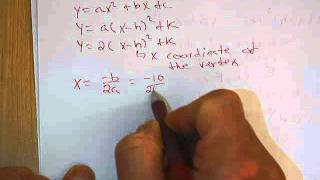 y = ax² + bx + c
y = a(x-h)² + k
y = 2(x-h)² + k
↳ x coordinate of
the vertex
x = -b/2a = -10/2